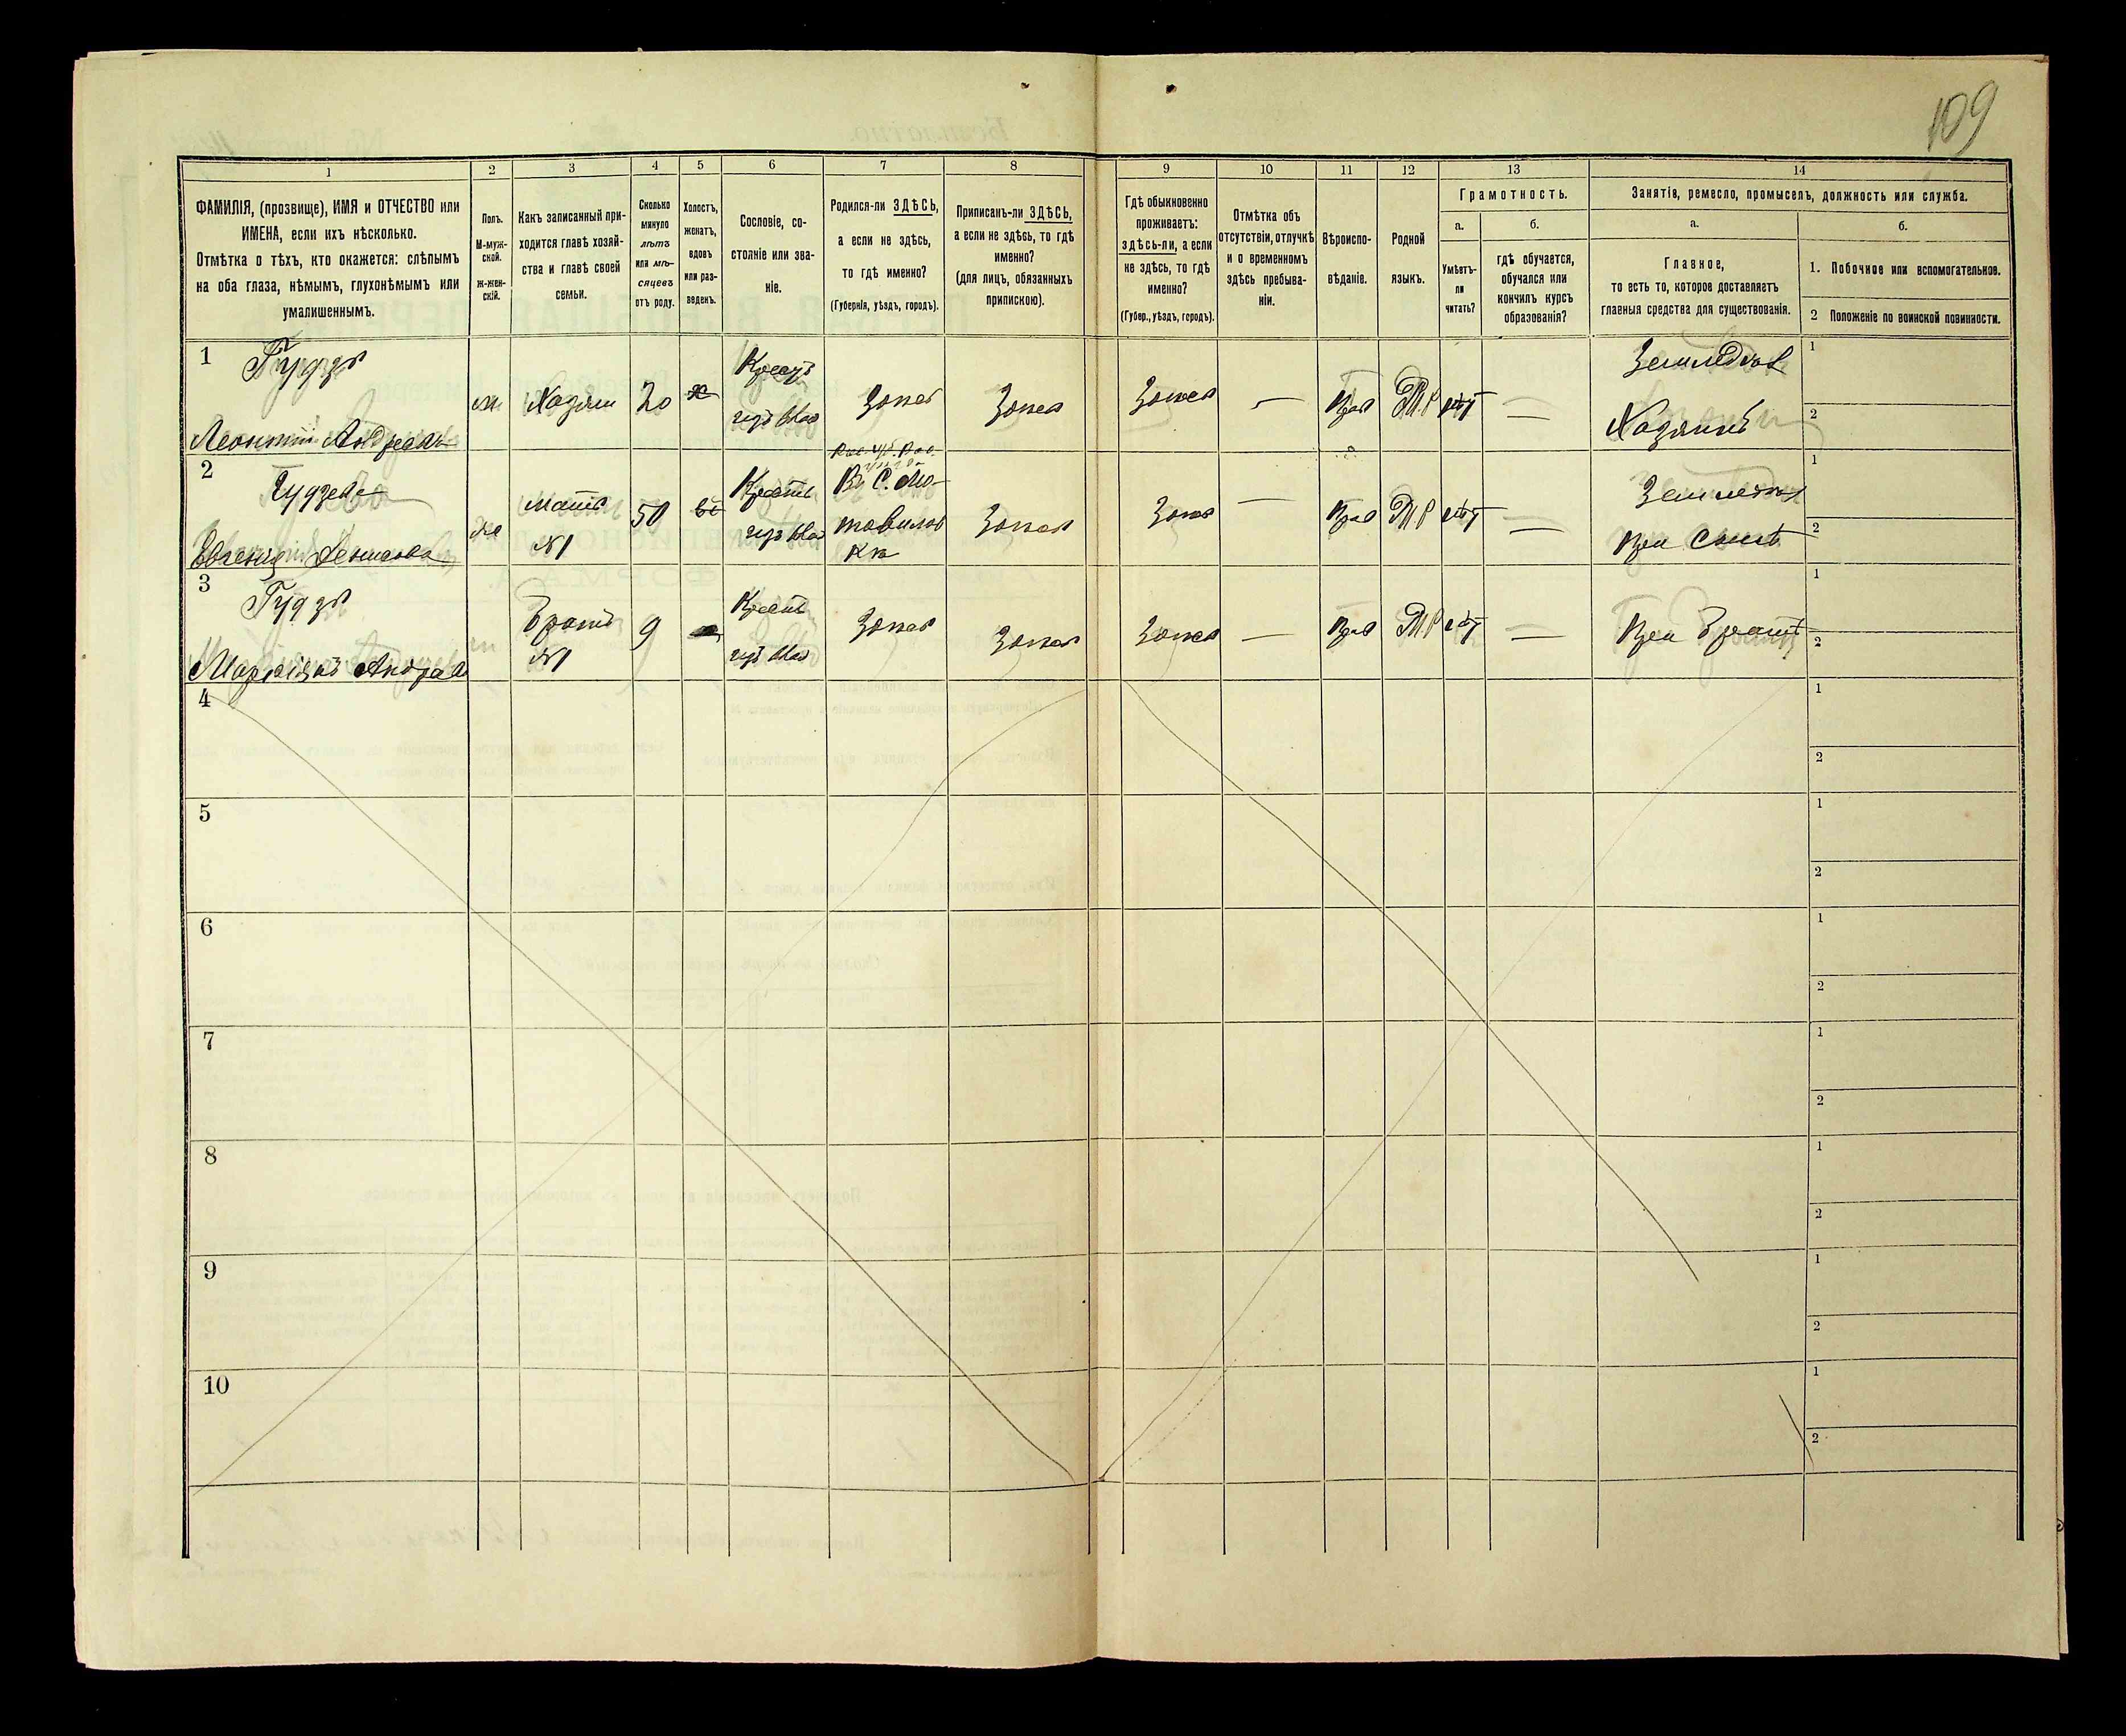 109
1
2
3
4
5
6
7
8
9
10
11
12
13
14
ФАМИЛІЯ, (прозвище), ИМЯ и ОТЧЕСТВО или
ИМЕНА, если ихъ нѣсколько.
Отмѣтка о тѣхъ, кто окажется: слѣпымъ
на оба глаза, нѣмымъ, глухонѣмымъ или
умалишеннымъ.
Полъ.
М-муж-
ской.
Ж-жен-
скій.
Какъ записанный при-
ходится главѣ хозяй-
ства и главѣ своей
семьи.
Сколько
минуло
лѣтъ
или мѣ-
сяцевъ
отъ роду.
Холостъ,
женатъ,
вдовъ
или раз-
веденъ.
Сословіе, со-
стояніе или зва-
ніе.
Родился-ли ЗДѢСЬ,
а если не здѣсь,
то гдѣ именно?
(Губернія, уѣздъ, городъ).
Приписанъ-ли ЗДѢСЬ,
а если не здѣсь, то гдѣ
именно?
(для лицъ, обязанныхъ
припискою).
Гдѣ обыкновенно
проживаетъ:
здѣсь-ли, а если
не здѣсь, то гдѣ
именно?
(Губер., уѣздъ, городъ).
Отмѣтка объ
отсутствіи, отлучкѣ
и о временномъ
здѣсь пребыва-
ніи.
Вѣроиспо-
вѣданіе.
Родной
языкъ.
Грамотность.
а.
Умѣетъ-
ли
читать?
б.
гдѣ обучается,
обучался или
кончилъ курсъ
образованія?
Занятія, ремесло, промыселъ, должность или служба.
а.
Главное,
то есть то, которое доставляетъ
главныя средства для существованія.
б.
1. Побочное или вспомогательное.
2 Положеніе по воинской повинности.
1
Гудзь
Леонтій
м
20
х
Прав
М.Р
нѣт
1
2
2
Гудзева
Евгенія Денисова
ж
Мать
№1
50
вд
Прав
М.Р
нѣт
При Сынѣ
1
2
3
Гудзь
Братъ
№1
9
Прав
М.Р
нѣт
При Братѣ
1
2
4
1
2
5
1
2
6
1
2
7
1
2
8
1
2
9
1
2
10
1
2